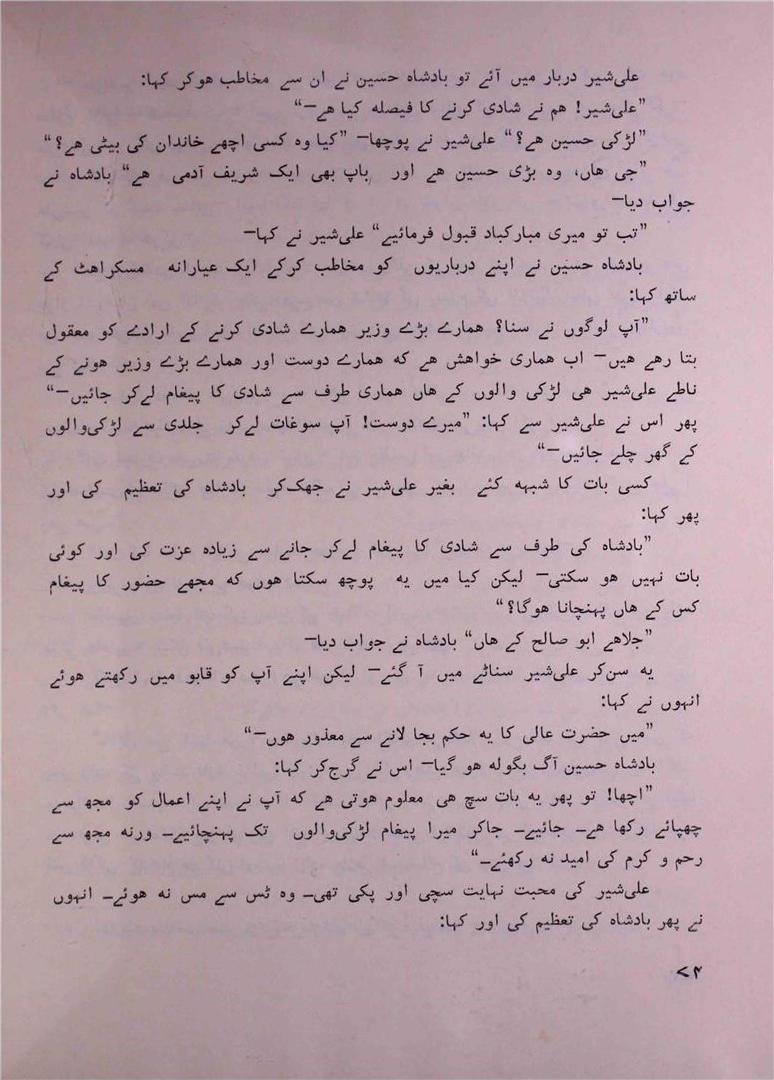 علی‌شیر دربار میں آئے تو بادشاہ حسین نے ان سے مخاطب ہوکر کہا:
”علی‌شیر! ہم نے شادی کرنے کا فیصلہ کیا ہے—“
”لڑکی حسین ہے؟“ علی‌شیر نے پوچھا— ”کیا وہ کسی اچھے خاندان کی بیٹی ہے؟“
”جی ہاں، وہ بڑی حسین ہے اور باپ بھی ایک شریف آدمی ہے“ بادشاہ نے
جواب دیا—
”تب تو میری مبارکباد قبول فرمائیے“ علی‌شیر نے کہا—
بادشاہ حسین نے اپنے درباریوں کو مخاطب کرکے ایک عیارانہ مسکراہٹ کے
ساتھ کہا:
”آپ لوگوں نے سنا؟ ہمارے بڑے وزیر ہمارے شادی کرنے کے ارادے کو معقول
بتا رہے ہیں— اب ہماری خواہش ہے کہ ہمارے دوست اور ہمارے بڑے وزیر ہونے کے
ناطے علی‌شیر ہی لڑکی والوں کے ہاں ہماری طرف سے شادی کا پیغام لے‌کر جائیں—“
پھر اس نے علی‌شیر سے کہا: ”میرے دوست! آپ سوغات لے‌کر جلدی سے لڑکی‌والوں
کے گھر چلے جائیں—“
کسی بات کا شبہہ کئے بغیر علی‌شیر نے جھک‌کر بادشاہ کی تعظیم کی اور
پھر کہا:
”بادشاہ کی طرف سے شادی کا پیغام لے‌کر جانے سے زیادہ عزت کی اور کوئی
بات نہیں ہو سکتی— لیکن کیا میں یہ پوچھ سکتا ہوں کہ مجھے حضور کا پیغام
کس کے ہاں پہنچانا ہوگا؟“
”جلاہے ابو صالح کے ہاں“ بادشاہ نے جواب دیا—
یہ سن‌کر علی‌شیر سناٹے میں آ گئے— لیکن اپنے آپ کو قابو میں رکھتے ہوئے
انہوں نے کہا:
”میں حضرت عالی کا یہ حکم بجا لانے سے معذور ہوں—“
بادشاہ حسین آگ بگولہ ہو گیا— اس نے گرج‌کر کہا:
”اچھا! تو پھر یہ بات سچ ہی معلوم ہوتی ہے کہ آپ نے اپنے اعمال کو مجھ سے
چھپائے رکھا ہے— جائیے— جاکر میرا پیغام لڑکی‌والوں تک پہنچائیے— ورنہ مجھ سے
رحم و کرم کی امید نہ رکھئے—“
علی‌شیر کی محبت نہایت سچی اور پکی تھی— وہ ٹس سے مس نہ ہوئے— انہوں
نے پھر بادشاہ کی تعظیم کی اور کہا:
۷۴